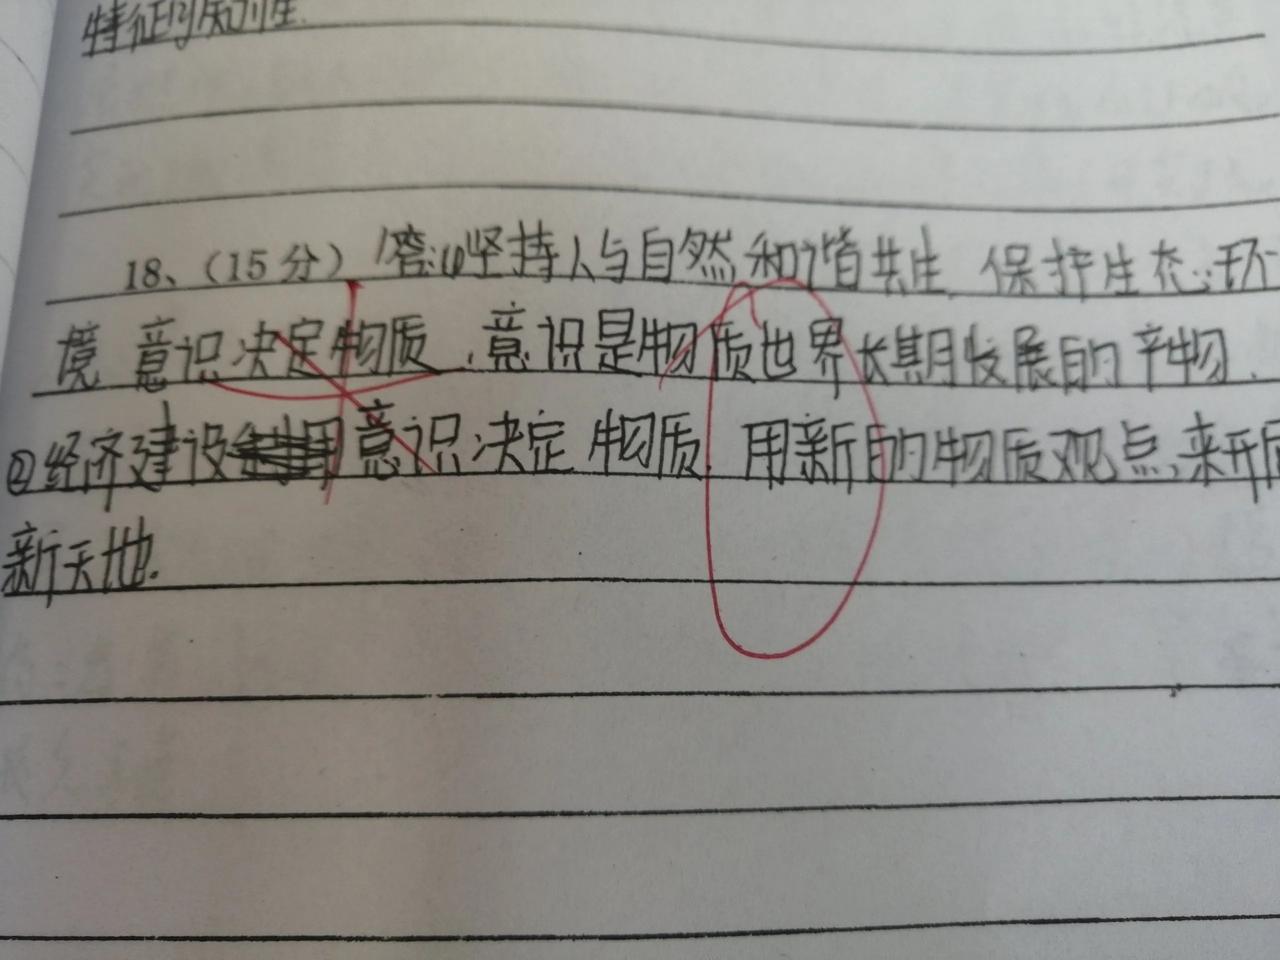 特征可知性.
18、（15分） 答:(1)坚持人与自然和谐共生 保护生态环
境 意识决定物质,意识是物质世界长期发展的产物.
②经济建设 意识决定物质 用新的物质观点,来开
新天地.